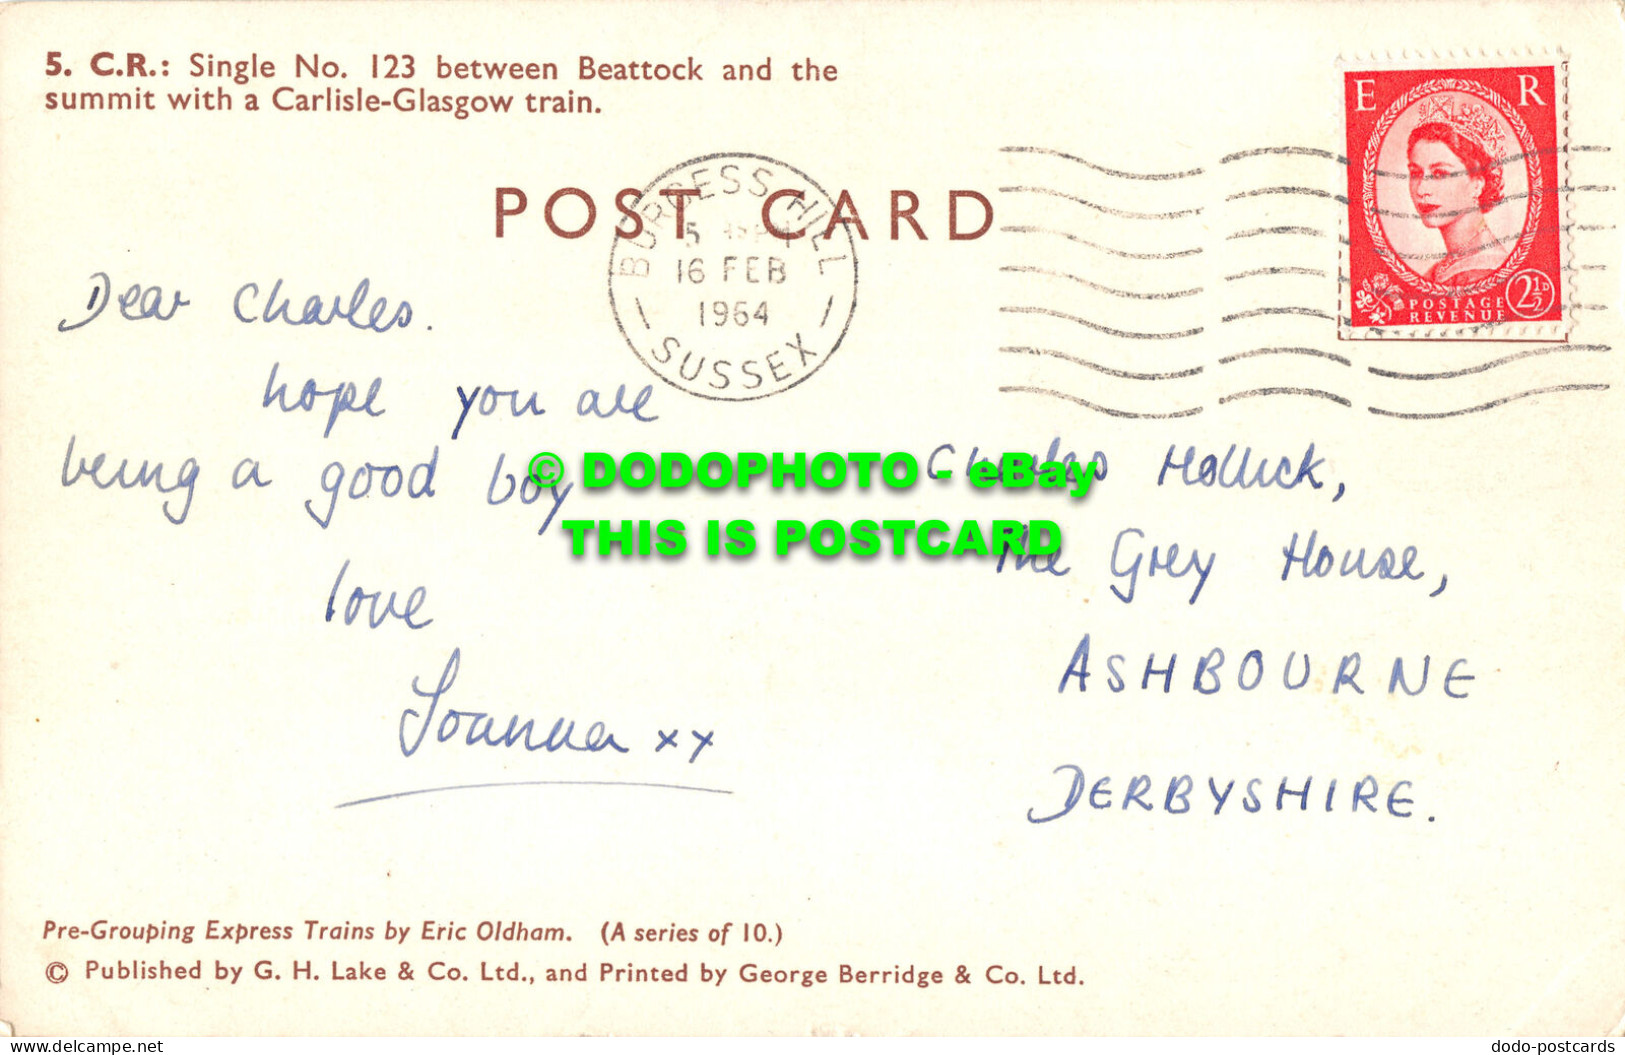 5. C.R.: Single No. 123 between Beattock and the
summit with a Carlisle-Glasgow train.
E R
POSTAGE
REVENUE
2½D
POST CARD
BURGESS HILL
16 FEB
1964
SUSSEX
Dear Charles.
hope you are
being a good boy
love
Joanna xx
© DODOPHOTO - eBay
THIS IS POSTCARD
Charles Hallick,
The Grey House,
ASHBOURNE
DERBYSHIRE.
Pre-Grouping Express Trains by Eric Oldham. (A series of 10.)
© Published by G. H. Lake & Co. Ltd., and Printed by George Berridge & Co. Ltd.
delcampe.net
dodo-postcards